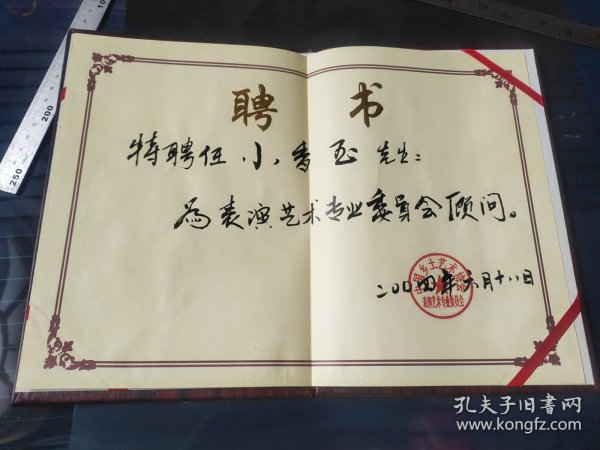 聘书
特聘任小香玉先生：
为表演艺术专业委员会顾问。
二00四年六月十八日
中国乡土艺术协会
表演艺术专业委员会
200
250
孔夫子旧书网
www.kongfz.com